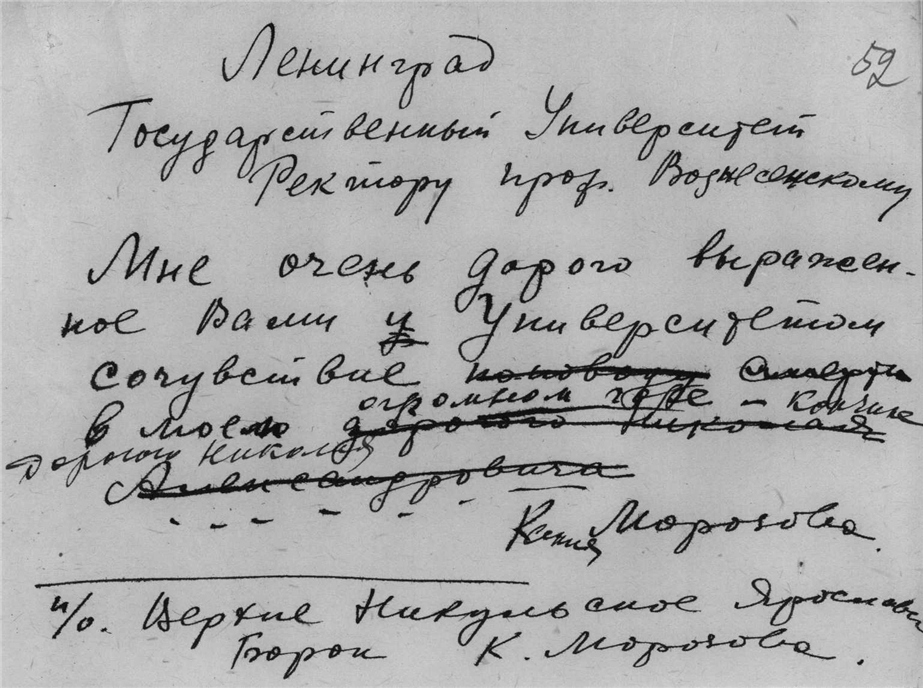 59
Ленинград
Государственный Университет
Ректору проф. Вознесенскому
Мне очень дорого выражен-
ное Вами и Университетом
сочувствие по поводу смерти
огромном горе – кончине
в моем дорогого Николая
дорогого Николая
Александровича
Ксения Морозова.
п/о. Верхне Никульское Ярославс
Борок К. Морозова.